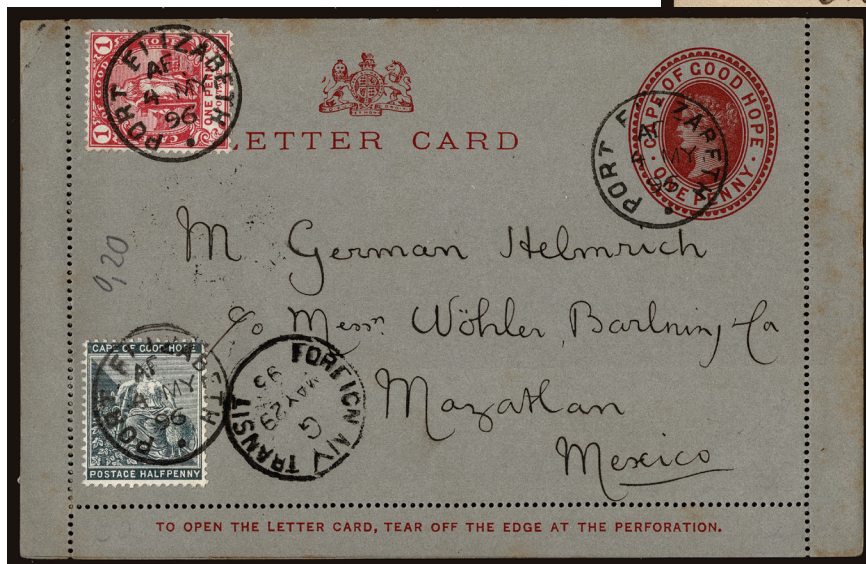 1 OF GOOD HOPE 1
1 ONE PENNY 1
PORT ELIZABETH
AF
4 MY
96
LETTER CARD
CAPE OF GOOD HOPE
ONE PENNY
PORT ELIZABETH
4 MY
96
M German Helmrich
c/o Messrs Wöhler, Bartning & Co
Mazatlan
Mexico
0,20
CAPE OF GOOD HOPE
POSTAGE HALFPENNY
PORT ELIZABETH
AF
4 MY
96
FOREIGN N.Y. TRANSIT
MAY 29
G
TO OPEN THE LETTER CARD, TEAR OFF THE EDGE AT THE PERFORATION.